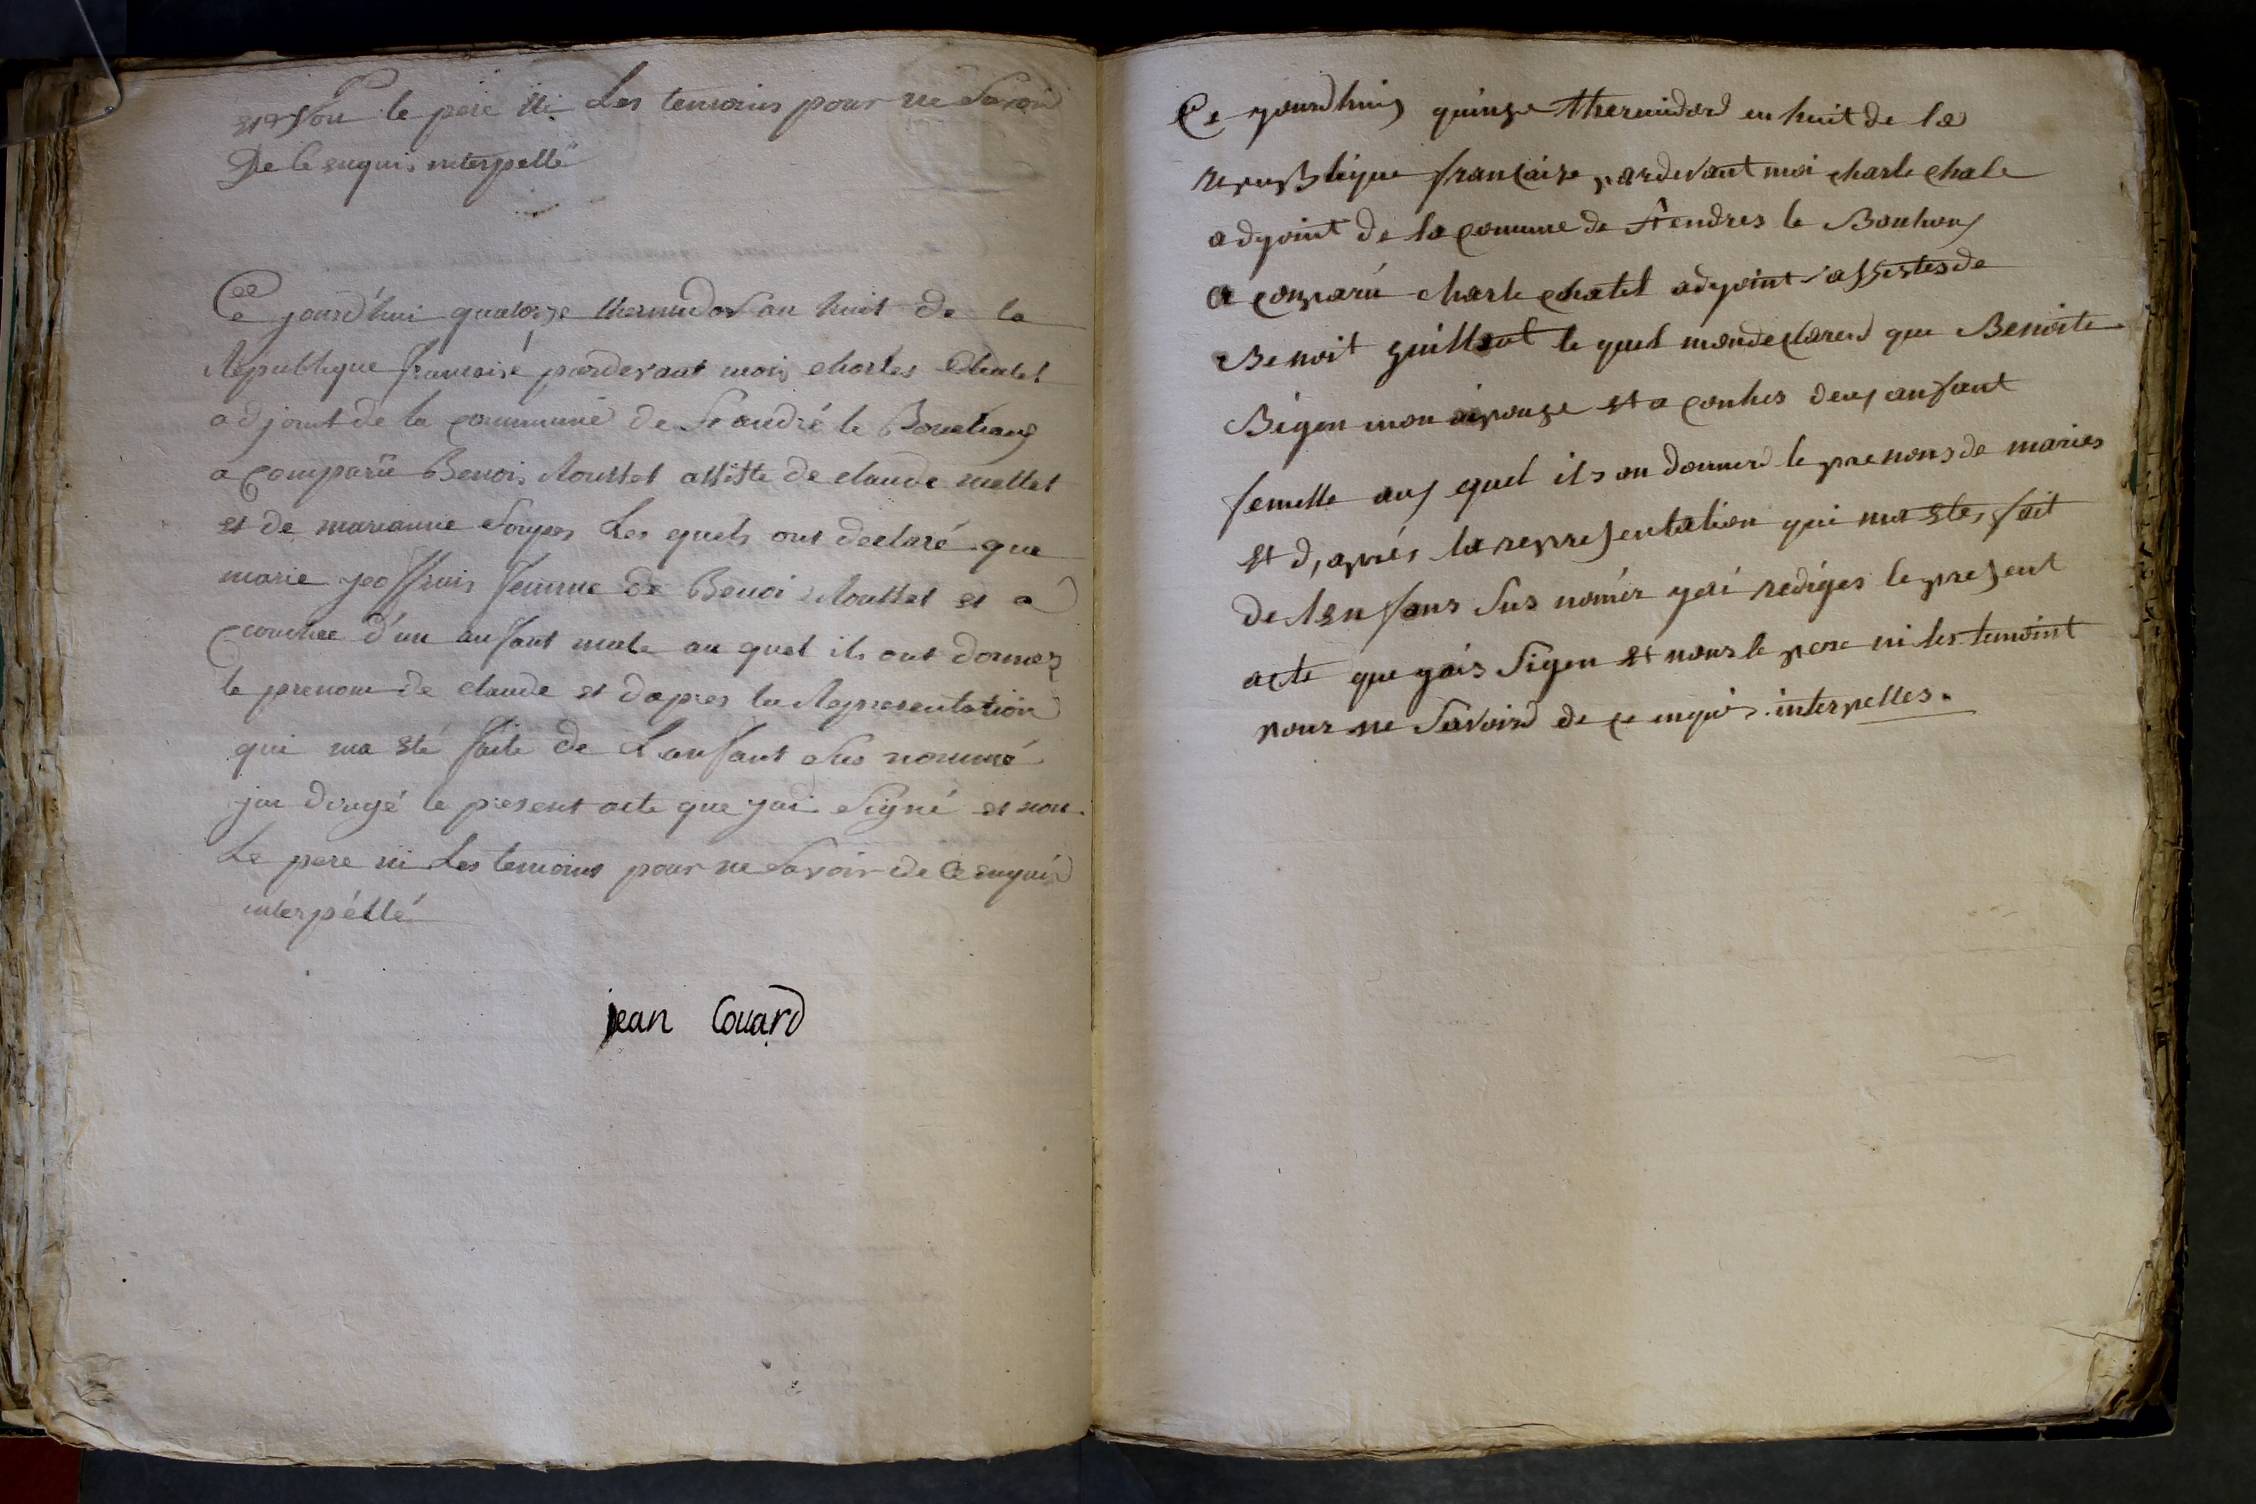 et non le pere ni Les temoins pour ne Savoir
De le enquis interpellé
Ce jourd'hui quatorze thermidor an huit de la
Republique francaise pardevant mois charles Chatel
adjoint de la commune de St andré le Bouchoug
a comparü Benois Moussel assiste de claude mellet
et de marianne Les quels ont declaré que
marie femme de Benoi Moussel et a
couchee d'un anfant male au quel ils ont donnez
le prenom de claude et dapres la Representation
qui ma eté faite de L'anfant Sus nommé
jai dirigé le present acte que jai Signé et non
Le pere ni Les temoins pour ne Savoir de Ce enquis
interpéllé
jean Couard
Ce yourdhuis quinze thermidord en huit de la
republique francaise pardevant moi charle Chale
adyoint de la comune de st endres le Bouhoux
a comparü charle chatel adyoint assistes de
Benoit le quel mon declared que Benoite
Bigon mon epouse et a couhes deux anfant
femelle aux quel ils on donnerd le prenons de maries
et d,aprés la representation qui ma etes fait
de lenfans Sus nomér yai rediges le present
acte que yais Signe et nons le pere ni les temoint
pour ne Savoird de ce enquis interpelles.